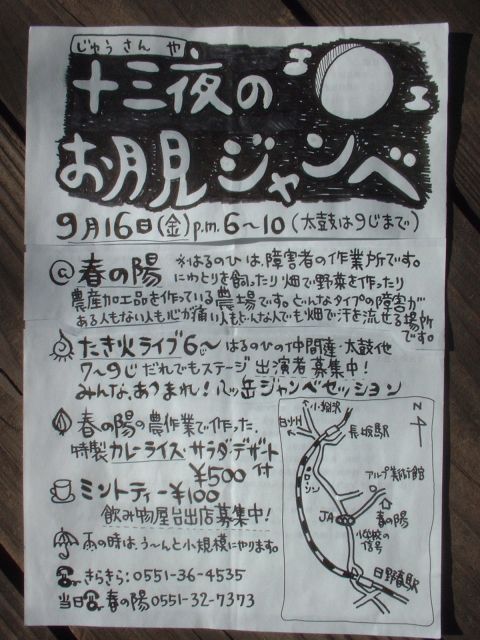 じゅうさんや
十三夜の
お月見ジャンベ
9月16日(金)p.m.6〜10(太鼓は9じまで)
@春の陽 ※はるのひは、障害者の作業所です。
にわとりを飼ったり畑で野菜を作ったり
農産加工品を作っている農場です。どんなタイプの障害が
ある人もない人も心が痛い人もどんな人でも畑で汗を流せる場所
です。
たき火ライブ6じ〜 はるのひの仲間達・太鼓他
7〜9じ だれでもステージ 出演者募集中!
みんな、あつまれ!八ヶ岳ジャンベセッション
春の陽の農作業で作った、
特製カレーライス・サラダ・デザート
¥500 付
ミントティー¥100
飲み物屋台出店募集中!
雨の時は、う〜んと小規模にやります。
きらきら:0551-36-4535
当日 春の陽 0551-32-7373
小淵沢
白州
長坂駅
N
ローソン
アルプ美術館
JA
春の陽
小学校の
信号
日野春駅